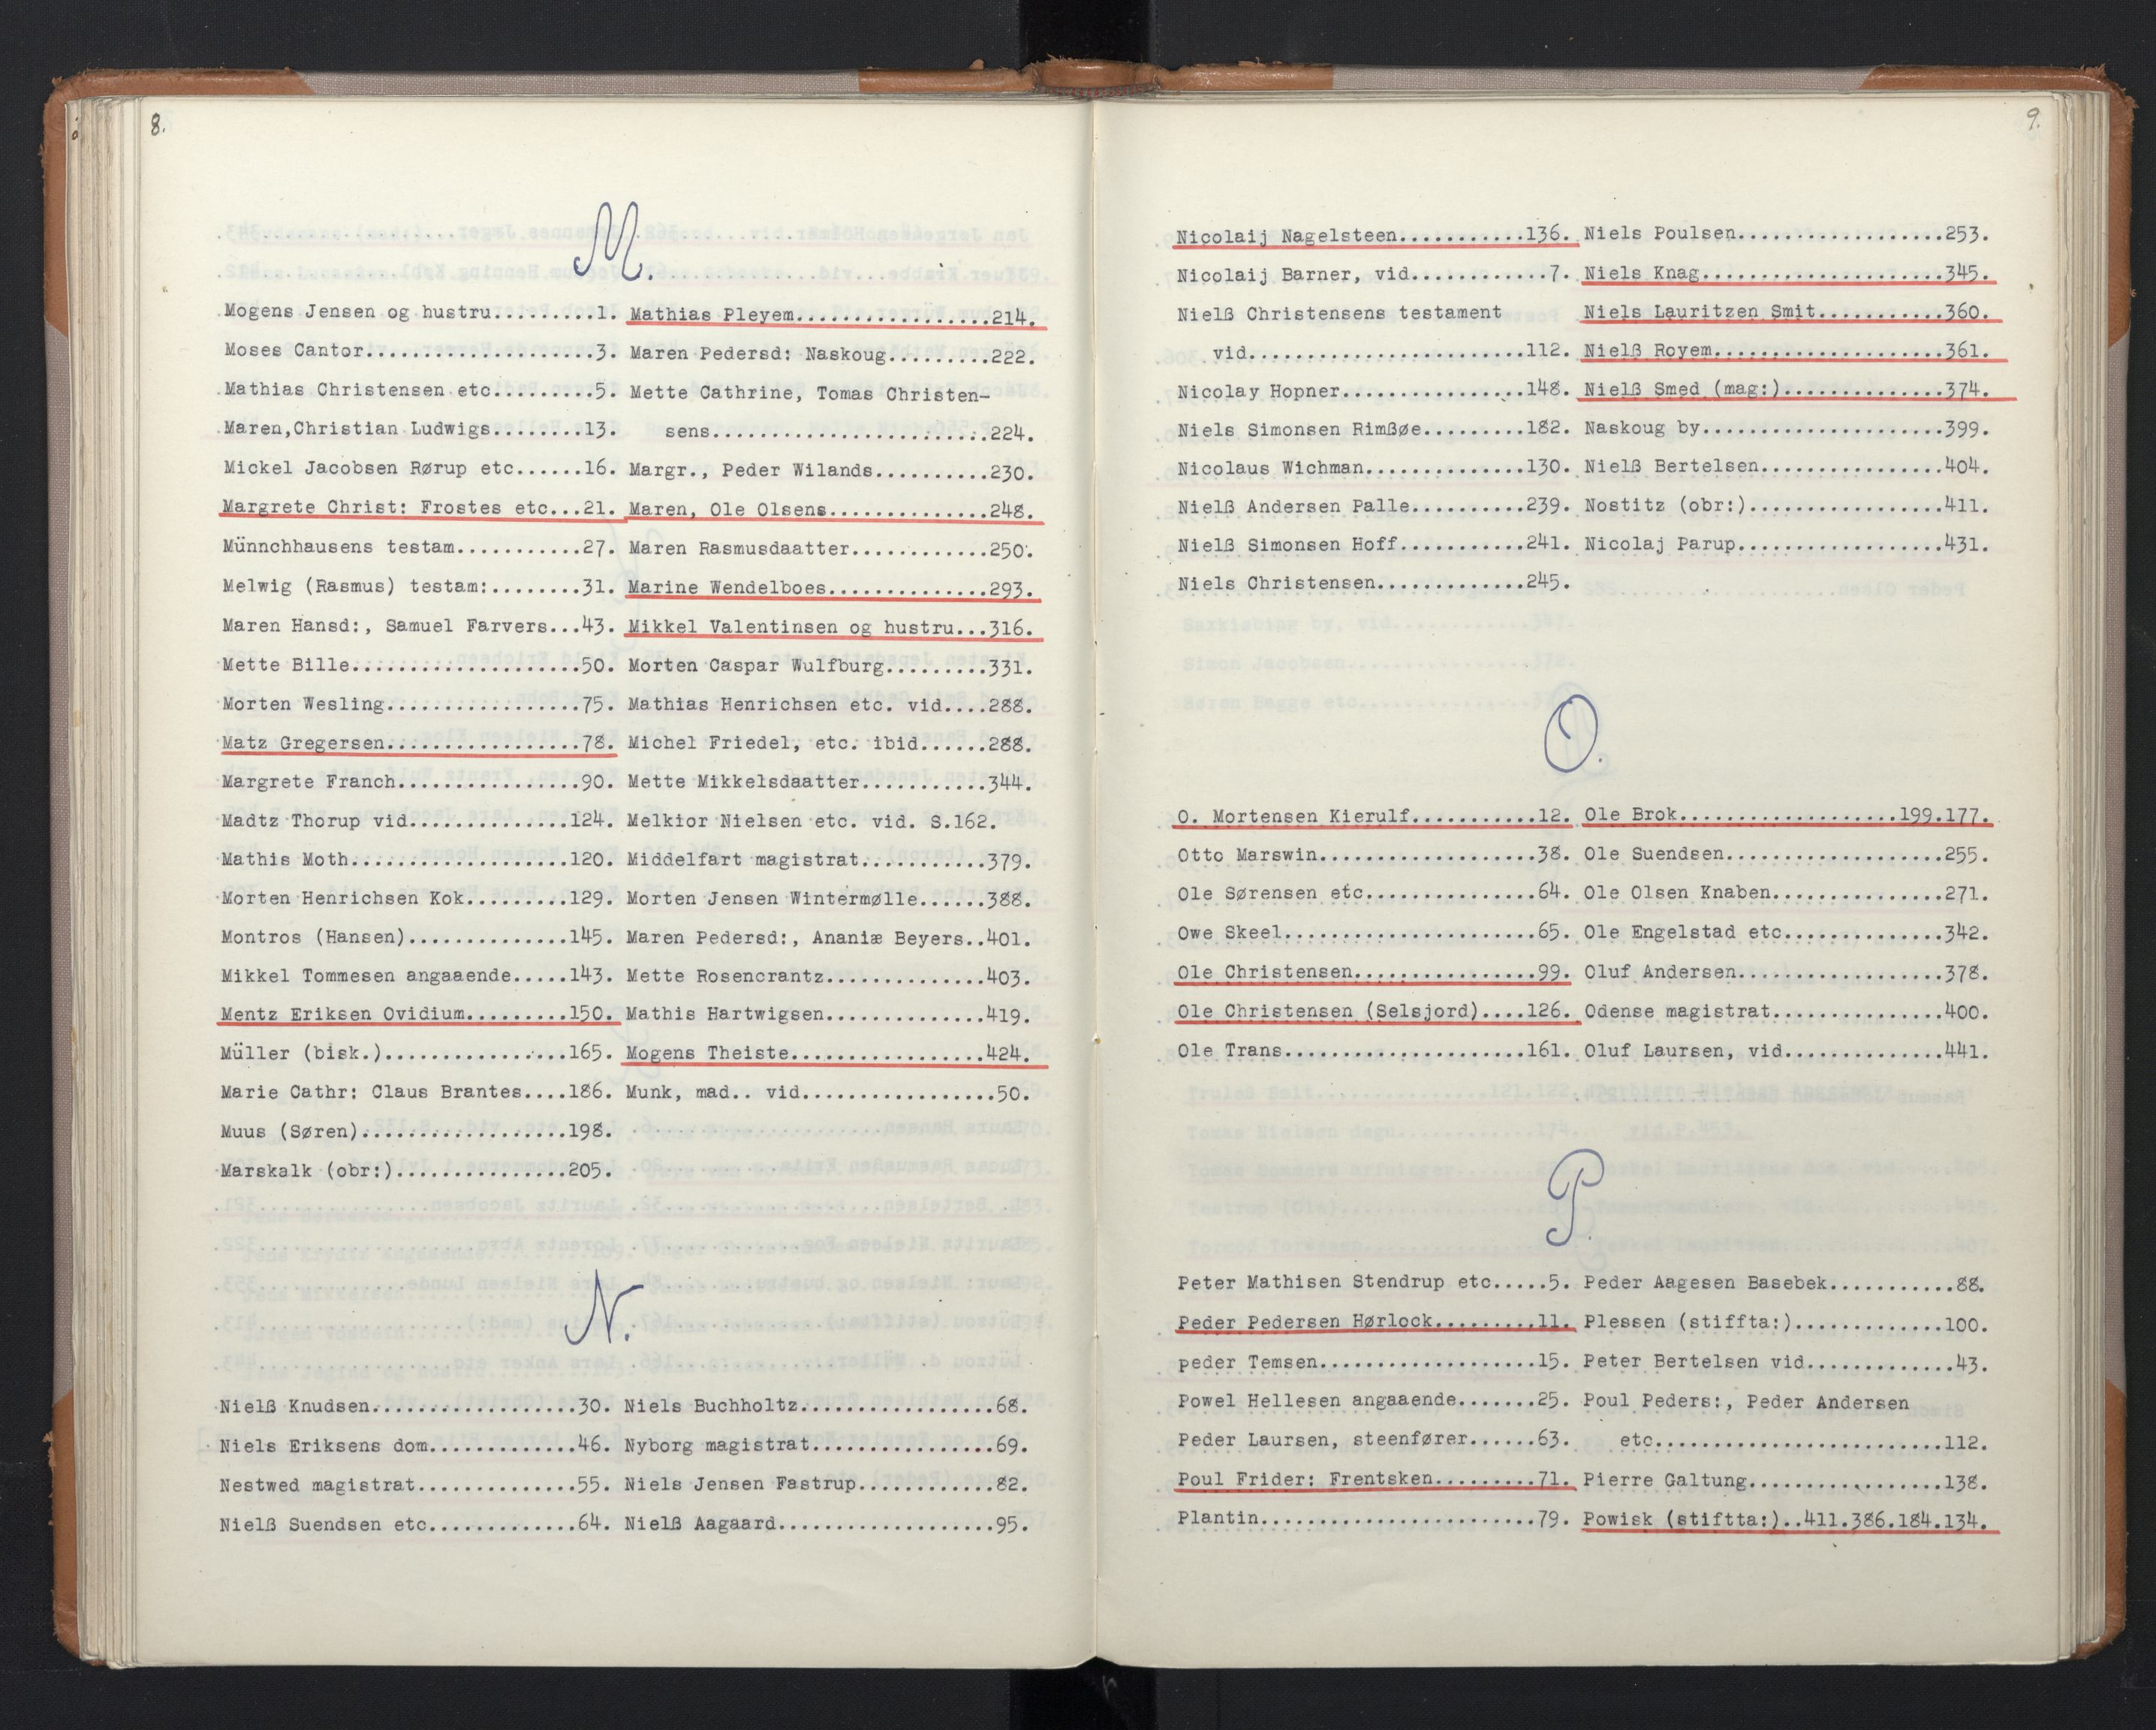 8.
M.
Mogens Jensen og hustru.........1.
Moses Cantor....................3.
Mathias Christensen etc.........5.
Maren,Christian Ludwigs........13.
Mickel Jacobsen Rørup etc......16.
Margrete Christ: Frostes etc...21.
Münnchhausens testam...........27.
Melwig (Rasmus) testam:........31.
Maren Hansd:, Samuel Farvers...43.
Mette Bille....................50.
Morten Wesling.................75.
Matz Gregersen.................78.
Margrete Franch................90.
Madtz Thorup vid..............124.
Mathis Moth...................120.
Morten Henrichsen Kok.........129.
Montros (Hansen)..............145.
Mikkel Tommesen angaaende.....143.
Mentz Eriksen Ovidium.........150.
Müller (bisk.)................165.
Marie Cathr: Claus Brantes....186.
Muus (Søren)..................198.
Marskalk (obr:)...............205.
Mathias Pleyem.................214.
Maren Pedersd: Naskoug.........222.
Mette Cathrine, Tomas Christen-
sens........................224.
Margr., Peder Wilands..........230.
Maren, Ole Olsens..............248.
Maren Rasmusdaatter............250.
Marine Wendelboes..............293.
Mikkel Valentinsen og hustru...316.
Morten Caspar Wulfburg.........331.
Mathias Henrichsen etc. vid....288.
Michel Friedel, etc. ibid......288.
Mette Mikkelsdaatter...........344.
Melkior Nielsen etc. vid. S.162.
Middelfart magistrat...........379.
Morten Jensen Wintermølle......388.
Maren Pedersd:, Ananiæ Beyers..401.
Mette Rosencrantz..............403.
Mathis Hartwigsen..............419.
Mogens Theiste.................424.
Munk, mad.. vid.................50.
N.
Nielß Knudsen..................30.
Niels Eriksens dom.............46.
Nestwed magistrat..............55.
Nielß Suendsen etc.............64.
Niels Buchholtz.................68.
Nyborg magistrat................69.
Niels Jensen Fastrup............82.
Nielß Aagaard...................95.
9.
Nicolaij Nagelsteen...........136.
Nicolaij Barner, vid............7.
Nielß Christensens testament
vid........................112.
Nicolay Hopner................148.
Niels Simonsen Rimßøe.........182.
Nicolaus Wichman..............130.
Nielß Andersen Palle..........239.
Nielß Simonsen Hoff...........241.
Niels Christensen.............245.
Niels Poulsen..................253.
Niels Knag.....................345.
Niels Lauritzen Smit...........360.
Nielß Royem....................361.
Nielß Smed (mag:)..............374.
Naskoug by.....................399.
Nielß Bertelsen................404.
Nostitz (obr:).................411.
Nicolaj Parup..................431.
O.
O. Mortensen Kierulf...........12.
Otto Marswin...................38.
Ole Sørensen etc...............64.
Owe Skeel......................65.
Ole Christensen................99.
Ole Christensen (Selsjord)....126.
Ole Trans.....................161.
Ole Brok...................199.177.
Ole Suendsen...................255.
Ole Olsen Knaben...............271.
Ole Engelstad etc..............342.
Oluf Andersen..................378.
Odense magistrat...............400.
Oluf Laursen, vid..............441.
P.
Peter Mathisen Stendrup etc.....5.
Peder Pedersen Hørlock.........11.
peder Temsen...................15.
Powel Hellesen angaaende.......25.
Peder Laursen, steenfører......63.
Poul Frider: Frentsken.........71.
Plantin........................79.
Peder Aagesen Basebek...........88.
Plessen (stiffta:).............100.
Peter Bertelsen vid.............43.
Poul Peders:, Peder Andersen
etc.........................112.
Pierre Galtung.................138.
Powisk (stiftta:)..411.386.184.134.